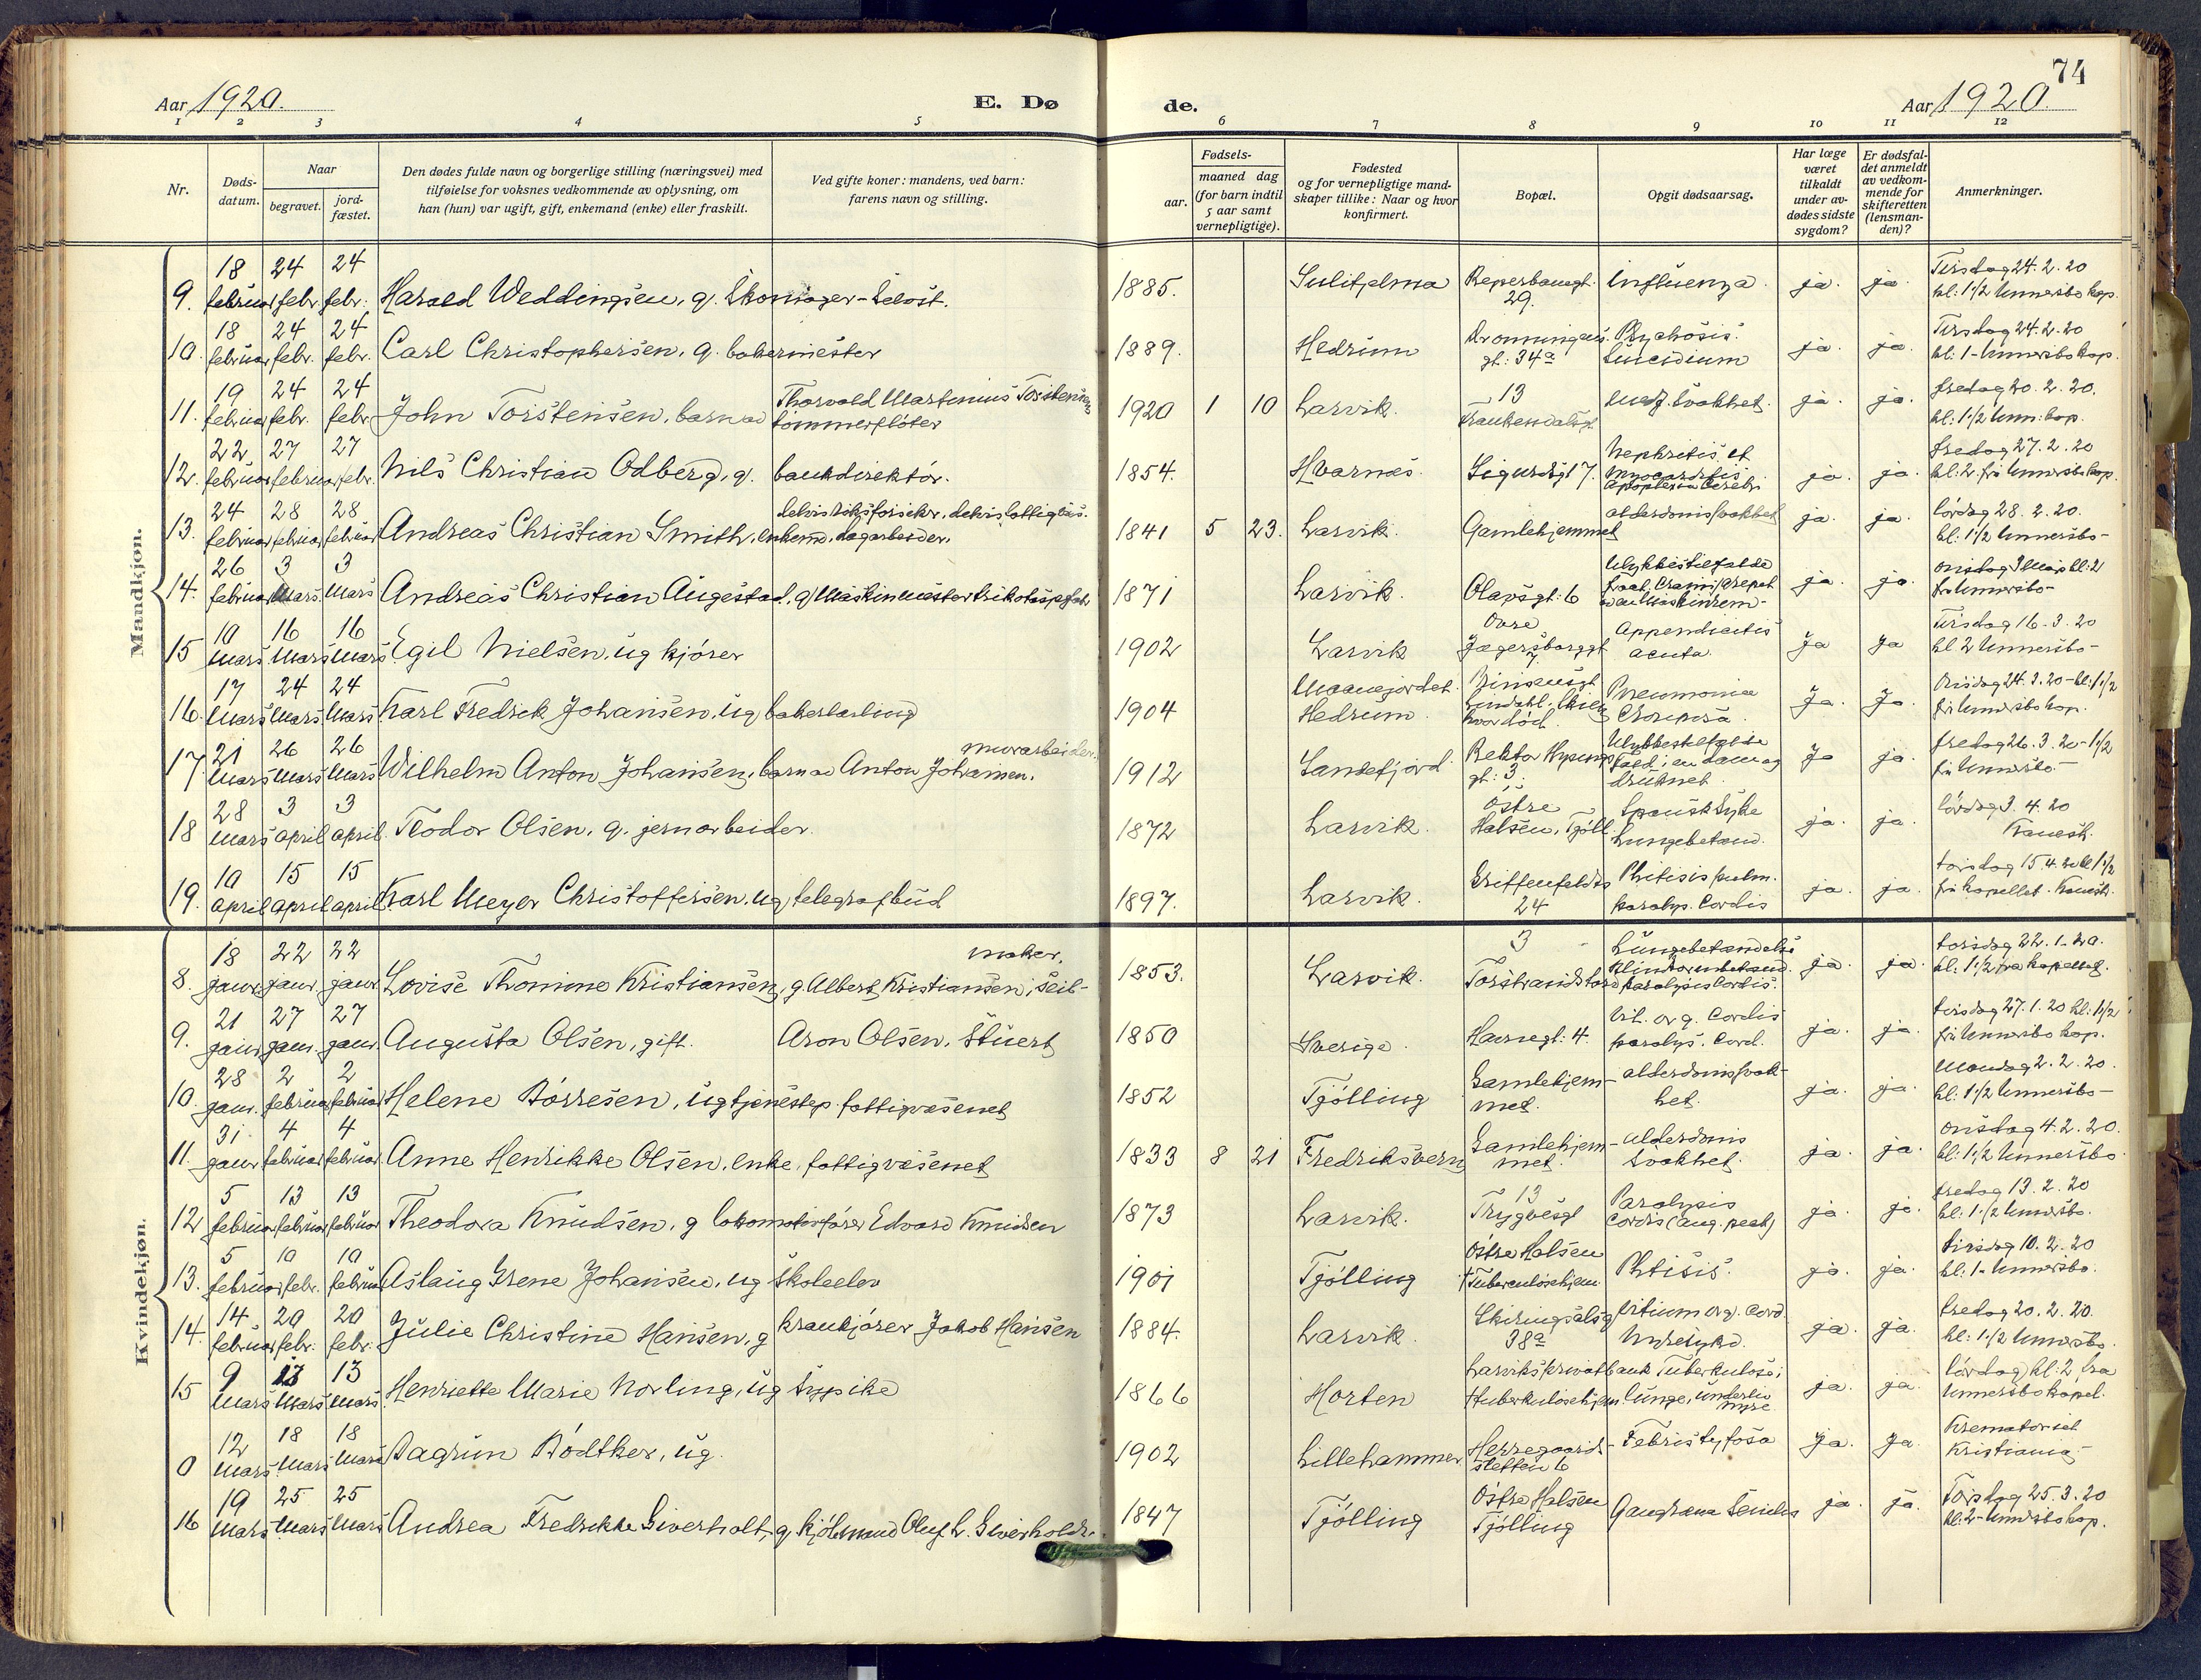 74
Aar 1920.
E. Dø de.
Aar 1920.
1 2 3 4 5 6 7 8 9 10 11 12
Nr.
Døds-
datum.
Naar
begravet.
jord-
fæstet.
Den dødes fulde navn og borgerlige stilling (næringsvei) med
tilføielse for voksnes vedkommende av oplysning, om
han (hun) var ugift, gift, enkemand (enke) eller fraskilt.
Ved gifte koner: mandens, ved barn:
farens navn og stilling.
Fødsels-
aar.
maaned dag
(for barn indtil
5 aar samt
vernepligtige).
Fødested
og for vernepligtige mand-
skaper tillike: Naar og hvor
konfirmert.
Bopæl.
Opgit dødsaarsag.
Har læge
været
tilkaldt
under av-
dødes sidste
sygdom?
Er dødsfal-
det anmeldt
av vedkom-
mende for
skifteretten
(lensman-
den)?
Anmerkninger.
Mandkjøn.
18 24 24
9. februar febr. febr. Harald Weddingsen, g. Skomager- 1885. Sulitjelma 29. Influenza. ja. ja. Tirsdag 24.2.20
kl: 1 1/2 Unnersbo kap.
18 24 24
10. februar febr. febr. Carl Christophersen, g. bakermester 1889. Hedrum Dronningens gt: 34a Psychosis. Suicidium ja. ja. Tirsdag 24.2.20
kl: 1 - Unnersbo kap.
19 24 24
11. februar febr. febr. John Torstensen, barn av Thorvald Martinius Torstensen tømmerfløter 1920 1 10 Larvik. 13 svakhet. ja. ja. fredag 20.2.20.
kl: 1 1/2 Unn: kap.
22 27 27
12. februar februar febr. Nils Christian Odberg, g. bankdirektør. 1854. Hvarnes. Sigurdsgt 7. Nephritis et myocarditis Apoplexia Cerebri ja. ja. fredag 27.2.20
kl: 2 fra Unnersbo kap.
24 28 28
13. februar februar februar Andreas Christian Smith, enkem. dagarbeider. delvis riksforsikr. delvis fattigvæs. 1841 5 23. Larvik. Gamlehjemmet alderdomssvakhet ja. ja. lørdag 28.2.20.
kl: 1 1/2 Unnersbo-
26 3 3
14. februar Mars. Mars Andreas Christian Augestad, g Maskinmester 1871 Larvik. Olavsgt: 6 Ulykkestilfælde ja. ja. onsdag 3 Mars kl: 2
fra Unnersbo-
10 16 16
15 Mars Mars Mars Egil Nielsen, ug kjører 1902 Larvik Øvre Jægersborggt 7 Appendicitis acuta. Ja Ja Tirsdag 16.3.20
kl 2 Unnersbo-
17 24 24
16. Mars Mars Mars Karl Fredrik Johansen, ug bakerlærling 1904 Hedrum. Pneumonia Crouposa. Ja. Ja. Onsdag 24.3.20 - kl: 1 1/2
fra Unnersbo kap.
21 26 26
17. Mars Mars Mars Wilhelm Anton Johansen, barn av Anton Johansen. murarbeider. 1912 Sandefjord. Rektor gt: 3. Ulykkestilfælde Fald i en dam og druknet. Ja ja. fredag 26.3.20 - 1 1/2
fra Unnersbo-
28 3 3
18 Mars april april. Teodor Olsen, g. jernarbeider. 1872 Larvik. Østre Halsen, Tjøll. Spansk Syke Lungebetænd. ja. ja. lørdag 3.4.20
10 15 15
19. april april april Karl Meyer Christoffersen, ug telegrafbud 1897. Larvik. Griffenfeldts 24 Phtisis pulm. paralys. Cordis ja. ja. torsdag 15.4.20 kl 1 1/2
fra kapellet.
Kvindekjøn.
18 22 22
8. janr. janr. janr. Lovise Thomine Kristiansen, g. Albert Kristiansen, seil-
maker. 1853. Larvik. 3 Torstrandstorv Lungebetændelse paralysis Cordis. ja. ja. torsdag 22.1.20.
kl: 1 1/2 fra kapellet.
21 27 27
9. janr. janr. janr. Augusta Olsen, gift. Aron Olsen, Stuert 1850 Sverige. Havnegt: 4. Vit. org. Cordis paralys. Cord. ja. ja. tirsdag 27.1.20 kl: 1 1/2
fra Unnersbo kap.
28 2 2
10. janr. februar februar Helene Børresen, ug tjenestep. fattigvæsenet 1852 Tjølling Gamlehjem-
met. alderdomssvak-
het. ja. ja. Mandag 2.2.20.
kl: 1 1/2 Unnersbo-
31 4 4
11. janr februar februar. Anne Henrikke Olsen, enke. fattigvæsenet 1833 8 21 Fredriksvern Gamlehjem-
met. alderdoms
svakhet. ja. ja. onsdag 4.2.20.
kl: 1 1/2 Unnersbo.
5 13 13
12 februar februar februar Theodora Knudsen, g lokomotivfører Edvard Knudsen 1873 Larvik. 13 Trygvesgt Paralysis Cordis (ang. pect) ja. ja. fredag 13.2.20
kl: 1 1/2 Unnersbo.
5 10 10
13. februar febr. februar Aslaug Irene Johansen, ug skoleelev 1901 Tjølling Østre Halsen †Tuberculosehjem. Phtisis. ja. ja. tirsdag 10.2.20
kl: 1 - Unnersbo.
14 20 20
14. februar febr. febr. Julie Christine Hansen, g krankjører Jakob Hansen 1884. Larvik. Skiringsalsg 38a Vitium org. Cord. Nyresykd. ja. ja. fredag 20.2.20.
kl: 1 1/2 Unnersbo.
9 13 13
15 Mars Mars Mars Henriette Marie Norling, ug sypike 1866 Horten Larviks privatbank †tuberkulosehjem. Tuberkulose i lunge, underliv nyre ja. ja. lørdag kl: 2 fra
Unnersbo kapel.
12 18 18
0 Mars Mars Mars Dagrun Bødtker, ug. 1902 Lillehammer. Herregaards-
sletten 6 Febris tyfosa Ja. Ja. Krematoriet
Kristiania-
19 25 25
16 Mars. Mars Mars Andrea Fredrikke Siverholt, g, kjøbmand Oluf L. Siverholdt. 1847 Tjølling Østre Halsen Tjølling Gangræna Senilis ja. ja. Torsdag 25.3.20
kl: 2 - Unnersbo kap.